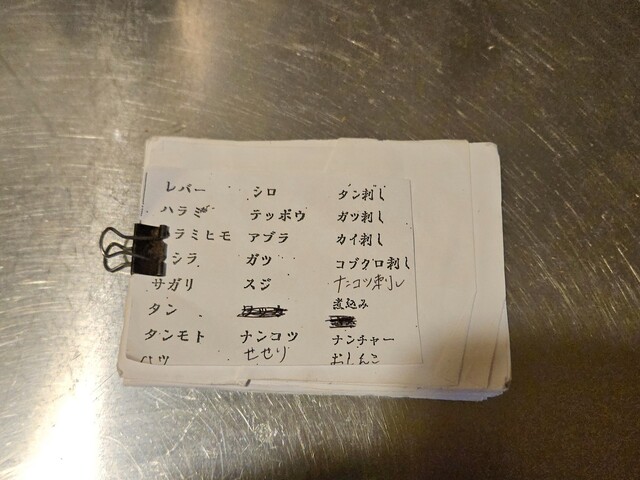 レバー シロ タン刺し
ハラミ テッポウ ガツ刺し
ラミヒモ アブラ カイ刺し
シラ ガツ コブクロ刺し
サガリ スジ ナンコツ刺し
タン 煮込み
タンモト ナンコツ ナンチャー
ハツ せせり おしんこ